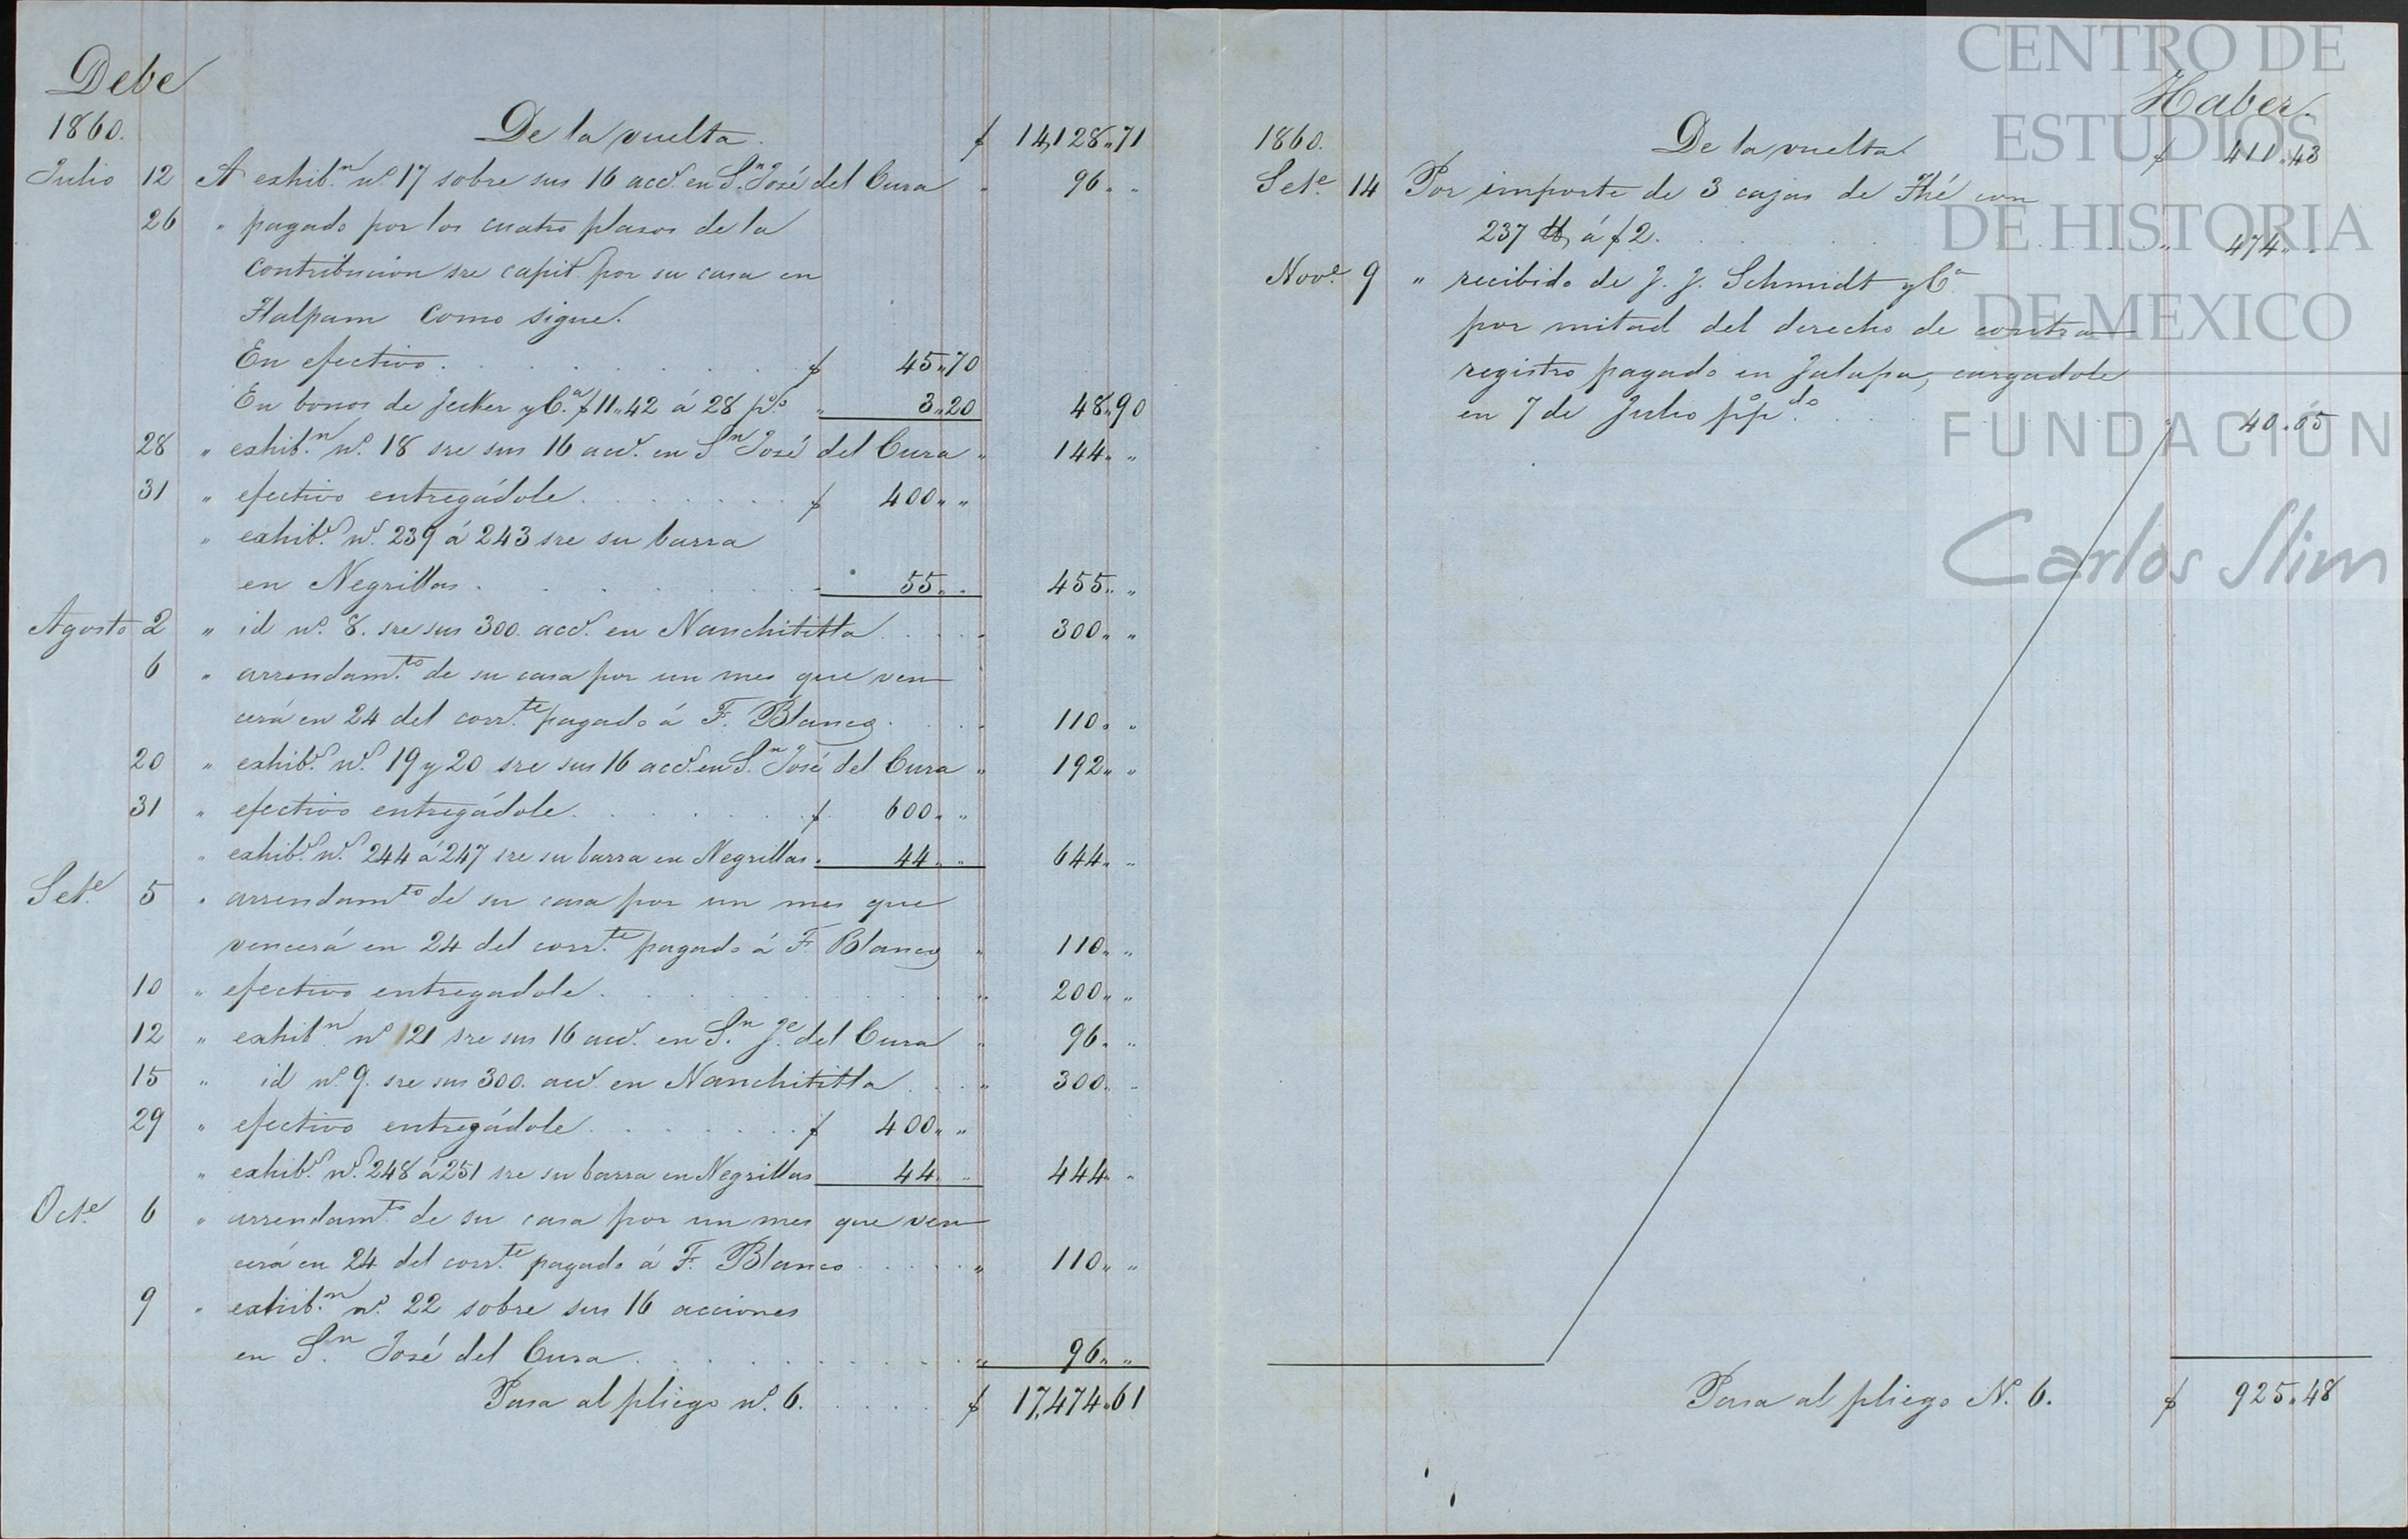 Debe
1860.
De la vuelta. $ 14,128„71
Julio 12 A exhib.n n.o 17 sobre sus 16 acc.s en S.n José del Cura „ 96„ „
26 „ pagado por los cuatro plasos de la
contribucion sre capit por su casa en
Tlalpam como sigue.
En efectivo . . . . $ 45„70
En bonos de Jecker y C.a $11„42 á 28 p.%o „ 3„20 48„90
28 „ exhib.n n.o 18 sre sus 16 acc.s en S.n José del Cura „ 144„ „
31 „ efectivo entregádole . . . . $ 400„ „
„ exhib.s n.s 239 á 243 sre su barra
en Negrillas . . . . „ 55„ „ 455„ „
Agosto 2 „ id n.o 8. sre sus 300. acc.s en Nanchititla . . . „ 300„ „
6 „ arrendam.to de su casa por un mes que ven
cerá en 24 del corr.te pagado á F. Blanco . . . „ 110„ „
20 „ exhib.s n.s 19 y 20 sre sus 16 acc.s en S.n José del Cura „ 192„ „
31 „ efectivo entregádole . . . . $ 600„ „
„ exhib.s n.s 244 á 247 sre su barra en Negrillas „ 44„ „ 644„ „
Set.e 5 „ arrendam.to de su casa por un mes que
vencerá en 24 del corr.te pagado á F. Blanco „ 110„ „
10 „ efectivo entregadole . . . . „ 200„ „
12 „ exhib.n n.o 21 sre sus 16 acc.s en S.n J.e del Cura „ 96„ „
15 „ id n.o 9. sre sus 300. acc.s en Nanchititla . . . „ 300„ „
29 „ efectivo entregádole . . . . $ 400„ „
„ exhib.s n.s 248 á 251 sre su barra en Negrillas 44„ „ 444„ „
Oct.e 6 „ arrendam.to de su casa por un mes que ven
cerá en 24 del corr.te pagado á F. Blanco . . . . „ 110„ „
9 „ exhib.n n.o 22 sobre sus 16 acciones
en S.n José del Cura . . . . „ 96„ „
Pasa al pliego n.o 6. . . . . $ 17,474„61
Haber.
1860. De la vuelta. $ 411„43
Set.e 14 Por importe de 3 cajas de Thé con
237 ℔ á $2. . . . . „ 474„ „
Nov.e 9 „ recibido de J. J. Schmidt y C.a
por mitad del derecho de contra
registro pagado en Jalapa, cargadole
en 7 de Julio p.o p.do . . . . „ 40„05
Pasa al pliego N.o 6. $ 925„48
CENTRO DE
ESTUDIOS
DE HISTORIA
DE MEXICO
FUNDACIÓN
Carlos Slim